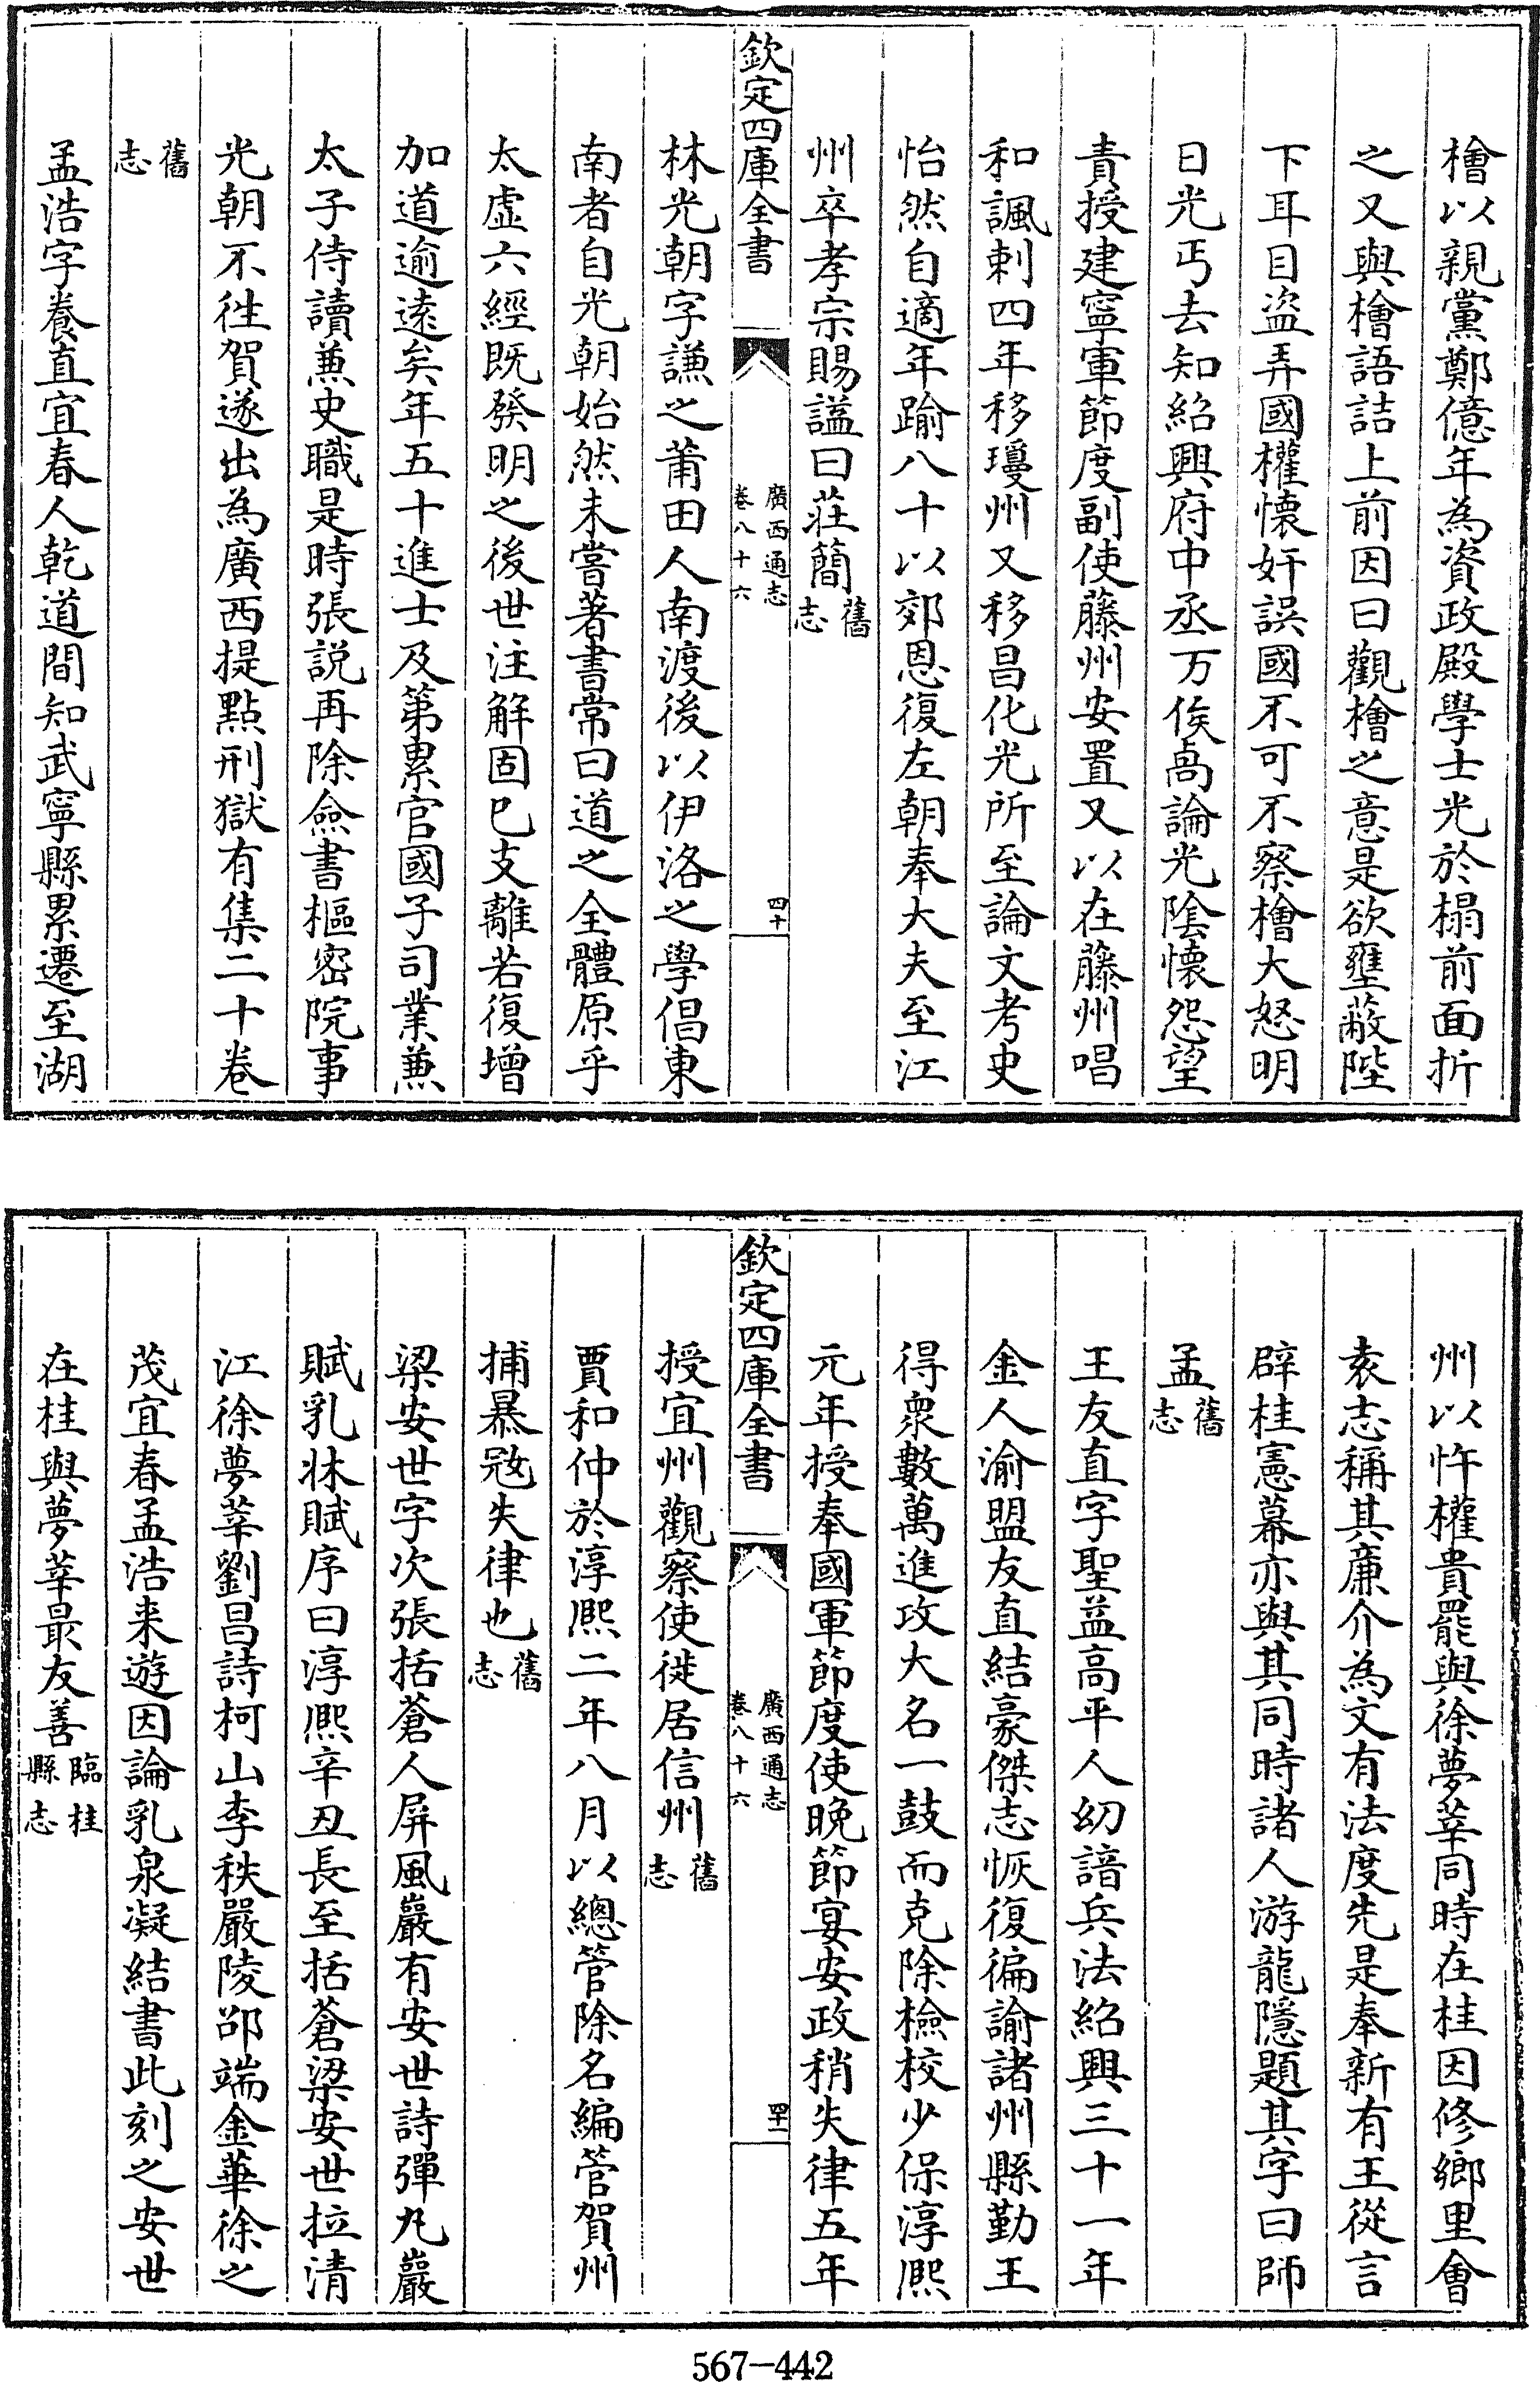 檜以親黨鄭億年為資政殿學士光於榻前面折
之又與檜語詰上前因曰觀檜之意是欲壅蔽陛
下耳目盜弄國權懷奸誤國不可不察檜大怒明
日光丐去知紹興府中丞万俟卨論光陰懷怨望
責授建寧軍節度副使藤州安置又以在藤州唱
和諷刺四年移瓊州又移昌化光所至論文考史
怡然自適年踰八十以郊恩復左朝奉大夫至江
州卒孝宗賜諡曰莊簡舊志
欽定四庫全書
廣西通志
卷八十六
四十
林光朝字謙之莆田人南渡後以伊洛之學倡東
南者自光朝始然未嘗著書常曰道之全體原乎
太虛六經既發明之後世注解固巳支離若復增
加道逾遠矣年五十進士及第累官國子司業兼
太子侍讀兼史職是時張說再除僉書樞密院事
光朝不徃賀遂出為廣西提點刑獄有集二十卷
舊志
孟浩字養直宜春人乾道間知武寧縣累遷至湖
州以忤權貴罷與徐夢莘同時在桂因修鄉里會
袁志稱其廉介為文有法度先是奉新有王從言
辟桂憲幕亦與其同時諸人游龍隱題其字曰師
孟舊志
王友直字聖益高平人幼諳兵法紹興三十一年
金人渝盟友直結豪傑志恢復徧諭諸州縣勤王
得衆數萬進攻大名一鼓而克除檢校少保淳熙
元年授奉國軍節度使晚節宴安政稍失律五年
欽定四庫全書
廣西通志
卷八十六
四十一
授宜州觀察使徙居信州舊志
賈和仲於淳熙二年八月以總管除名編管賀州
捕暴冦失律也舊志
梁安世字次張括蒼人屏風巖有安世詩彈丸巖
賦乳牀賦序曰淳熙辛丑長至括蒼梁安世拉清
江徐夢莘劉昌詩柯山李秩嚴陵邵端金華徐之
茂宜春孟浩来遊因論乳泉凝結書此刻之安世
在桂與夢莘最友善臨桂縣志
567-442